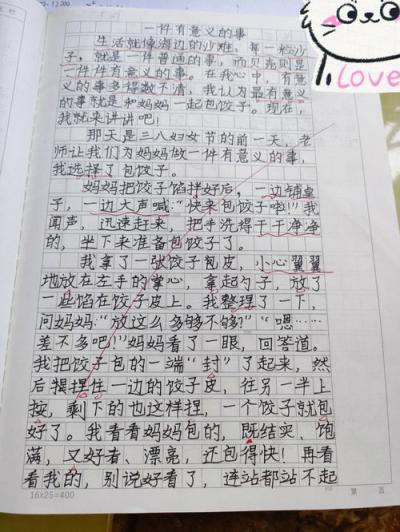 一件有意义的事
生活就像海边的沙滩，每一粒沙
子，就是一件普通的事，而贝壳则是
一件件有意义的事。在我心中，有意
义的事多得数不清，我认为最有意义
的事就是和妈妈一起包饺子。现在，
我就来讲讲吧！
那天是三八妇女节的前一天，老
师让我们为妈妈做一件有意义的事，
我选择了包饺子。
妈妈把饺子馅拌好后，一边铺桌
子，一边大声喊：“快来包饺子啦！”我
闻声，迅速赶来，把手洗得干干净净
的，坐下来准备包饺子了。
我拿了一张饺子包皮，小心翼翼
地放在左手的掌心，拿起勺子，放了
一些馅在饺子皮上。我整理了一下，
问妈妈：“放这么多够不够？”“嗯……
差不多吧！”妈妈看了一眼，回答道。
我把饺子包的一端“封”了起来，然
后捏住一边的饺子皮，往另一半上
按，剩下的也这样捏，一个饺子就包
好了。我看看妈妈包的，既结实、饱
满，又好看、漂亮，还包得快！再看
看我的，别说好看了，连站都站不起
16×25=400
第 页
Love